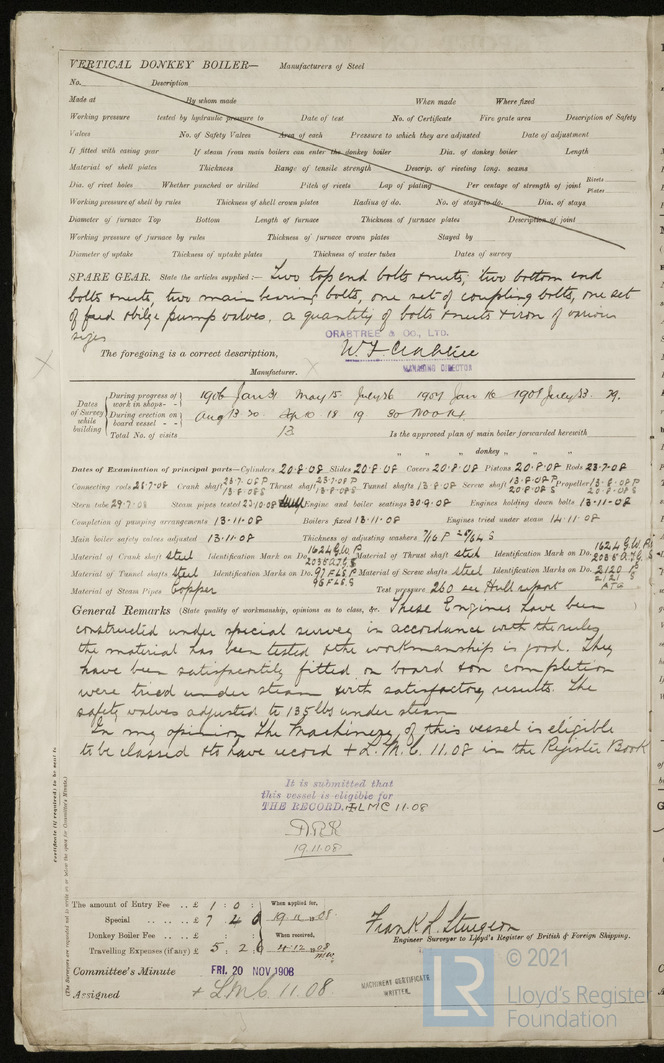 VERTICAL DONKEY BOILER— Manufacturers of Steel
No. Description
Made at By whom made When made Where fixed
Working pressure tested by hydraulic pressure to Date of test No. of Certificate Fire grate area Description of Safety
Valves No. of Safety Valves Area of each Pressure to which they are adjusted Date of adjustment
If fitted with casing gear If steam from main boilers can enter the donkey boiler Dia. of donkey boiler Length
Material of shell plates Thickness Range of tensile strength Descrip. of riveting long. seams
Dia. of rivet holes Whether punched or drilled Pitch of rivets Lap of plating Per centage of strength of joint Rivets Plates
Working pressure of shell by rules Thickness of shell crown plates Radius of do. No. of stays to do. Dia. of stays
Diameter of furnace Top Bottom Length of furnace Thickness of furnace plates Description of joint
Working pressure of furnace by rules Thickness of furnace crown plates Stayed by
Diameter of uptake Thickness of uptake plates Thickness of water tubes Dates of survey
SPARE GEAR. State the articles supplied:— Two top end bolts & nuts, two bottom end
bolts & nuts, two main bearing bolts, one set of coupling bolts, one set
of feed & bilge pump valves, a quantity of bolts & nuts & iron of various
sizes
CRABTREE & Co., LTD.
The foregoing is a correct description, W. F. Crabtree
MANAGING DIRECTOR
Manufacturer.
Dates of Survey while building
During progress of work in shops- - 1906 Jan 31 May 15 July 26 1907 Jan 16 1908 July 23. 29.
During erection on board vessel - - Aug 13 20. 18 19 30
Total No. of visits 13 Is the approved plan of main boiler forwarded herewith
" " " donkey " " "
Dates of Examination of principal parts—Cylinders 20.8.08 Slides 20.8.08 Covers 20.8.08 Pistons 20.8.08 Rods 23.7.08
Connecting rods 23.7.08 Crank shaft 23.7.08 P 13.8.08 S Thrust shaft 23.7.08 P 13.8.08 S Tunnel shafts 13.8.08 Screw shaft 13.8.08 P 20.8.08 S Propeller 13.8.08 P 20.8.08 S
Stern tube 29.7.08 Steam pipes tested 23.10.08 Engine and boiler seatings 30.9.08 Engines holding down bolts 13-11-08
Completion of pumping arrangements 13-11-08 Boilers fixed 13-11-08 Engines tried under steam 14-11-08
Main boiler safety valves adjusted 13-11-08 Thickness of adjusting washers 7/16 P 29/64 S
Material of Crank shaft steel Identification Mark on Do. 1624 G.W. P 2035 A.T.G. S Material of Thrust shaft steel Identification Mark on Do. 1624 G.W. P 2035 A.T.G. S
Material of Tunnel shafts steel Identification Marks on Do. 97 F.L.S. P 96 F.L.S. S Material of Screw shafts steel Identification Marks on Do. 2120 P 2121 S ATG
Material of Steam Pipes Copper Test pressure 260 see Hull report
General Remarks (State quality of workmanship, opinions as to class, &c. These Engines have been
constructed under special survey in accordance with the rules
the material has been tested & the workmanship is good. They
have been satisfactorily fitted on board & on completion
were tried under steam with satisfactory results. The
safety valves adjusted to 135 lbs under steam
In my opinion the Machinery of this vessel is eligible
to be classed & to have record + L.M.C. 11.08 in the Register Book
It is submitted that
this vessel is eligible for
THE RECORD. + LMC 11.08
19.11.08
Certificate (if required) to be sent to
(The Surveyors are requested not to write on or below the space for Committee's Minute.)
The amount of Entry Fee .. £ 1 : 0 : When applied for,
Special .. .. .. £ 7 . 4 6 19.11.08.
Donkey Boiler Fee .. .. £ : : When received,
Travelling Expenses (if any) £ 5 . 2 6 4.12.08
Frank L. Sturgeon
Engineer Surveyor to Lloyd's Register of British & Foreign Shipping.
Committee's Minute FRI. 20 NOV 1908
Assigned + L.M.C. 11.08.
MACHINERY CERTIFICATE
WRITTEN.
LR
© 2021
Lloyd's Register
Foundation